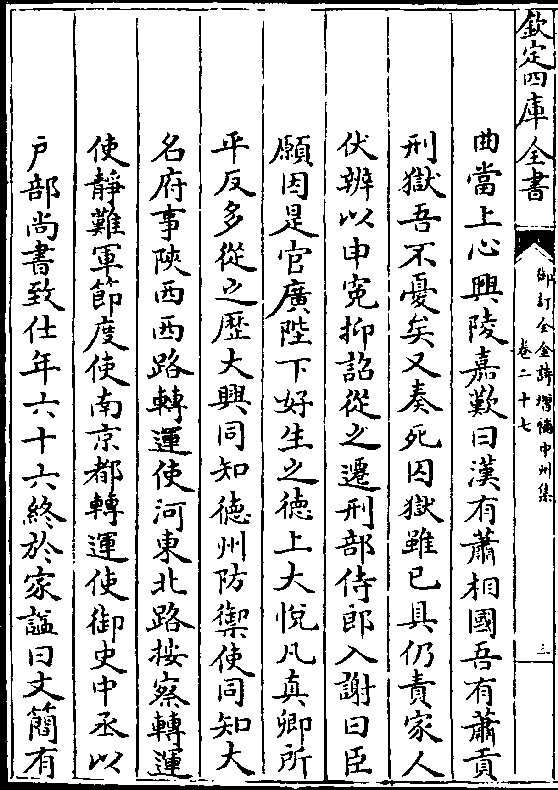 欽定四庫全書
御訂全金詩增補中州集
卷二十七
三
曲當上心興陵嘉歎曰漢有蕭相國吾有蕭貢
刑獄吾不憂矣又奏死囚獄雖已具仍責家人
伏辨以申寃抑詔從之遷刑部侍郎入謝曰臣
願因是官廣陛下好生之徳上大悅凡真卿所
平反多從之歷大興同知徳州防禦使同知大
名府事陜西西路轉運使河東北路按察轉運
使靜難軍節度使南京都轉運使御史中丞以
戸部尚書致仕年六十六終於家諡曰文簡有